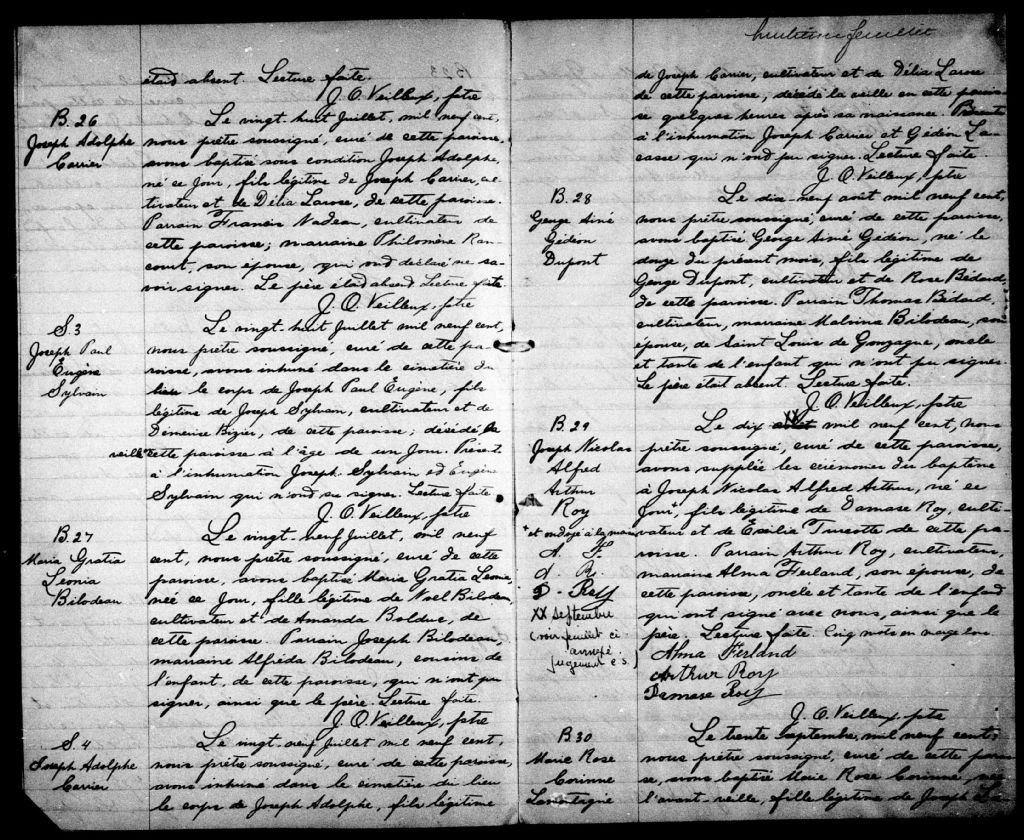 étaid absent Lecture faite.
J. O. Veilleux, ptre
B. 26
Joseph Adolphe
Carrier
Le vingt-huit Juillet, mil neuf cent,
nous prêtre soussigné, curé de cette paroisse,
avons baptisé sous condition Joseph Adolphe,
né ce Jour, fils légitime de Joseph Carrier, cul-
tivateur et de Délia Larose, de cette paroisse.
Parrain Francis Nadeau, cultivateur de
cette paroisse; marraine Philomène Ran-
court, son épouse, qui ond déclaré ne sa-
voir signer. Le père étaid absend Lecture faite.
J. O. Veilleux, ptre
S. 3
Joseph Paul
Eugène
Sylvain
Le vingt-huit Juillet mil neuf cent,
nous prêtre soussigné, curé de cette pa-
roisse, avons inhumé dans le cimetière du
lieu le corps de Joseph Paul Eugène, fils
légitime de Joseph Sylvain, cultivateur et de
Démerise Bizier, de cette paroisse; décédé la
veille cette paroisse à l'âge de un Jour. Présent
à l'inhumation Joseph Sylvain ed Eugène
Sylvain qui n'ond su signer. Lecture faite.
J. O. Veilleux, ptre
B. 27
Maria Gratia
Leonia
Bilodeau
Le vingt-neuf Juillet, mil neuf
cent, nous prêtre soussigné, curé de cette
paroisse, avons baptisé Maria Gratia Leonia,
née ce Jour, fille légitime de Noel Bilodeau,
cultivateur et de Amanda Bolduc, de
cette paroisse. Parrain Joseph Bilodeau,
marraine Alfréda Bilodeau, cousins de
l'enfant, de cette paroisse, qui n'ont pu
signer, ainsi que le père. Lecture faite.
J. O. Veilleux, ptre
S. 4
Joseph Adolphe
Carrier
Le vingt-neuf Juillet mil neuf cent,
nous prêtre soussigné, curé de cette paroisse,
avons inhumé dans le cimetière du lieu
le corps de Joseph Adolphe, fils légitime
huitième feuillet
de Joseph Carrier, cultivateur et de Délia Larose
de cette paroisse, décédé la veille en cette parois-
se quelques heures après sa naissance. Présents
à l'inhumation Joseph Carrier et Gédéon La-
casse qui n'ond pu signer. Lecture faite.
J. O. Veilleux, ptre
B. 28
George Aimé
Gédéon
Dupont
Le dix-neuf août mil neuf cent,
nous prêtre soussigné, curé de cette paroisse,
avons baptisé George Aimé Gédéon, né le
douze du présent mois, fils légitime de
George Dupont, cultivateur et de Rose Bédard,
de cette paroisse. Parrain Thomas Bédard,
cultivateur, marraine Malvina Bilodeau, son
épouse, de Saint Louis de Gonzague, oncle
et tante de l'enfant qui n'ont pu signer.
Le père était absent. Lecture faite.
J. O. Veilleux, ptre
B. 29
Joseph Nicolas
Alfred
Arthur
Roy
+ et ondoyé à la maison
A. F.
A. R.
D. Roy
XX septembre
(voir feuillet ci
annexé
jugement c.s.)
XX
Le dix août mil neuf cent, nous
prêtre soussigné, curé de cette paroisse,
avons supplée les cérémonies du baptême
à Joseph Nicolas Alfred Arthur, né ce
Jour, fils légitime de Damase Roy, culti-
vateur et de Exilia Turcotte de cette pa-
roisse. Parrain Arthur Roy, cultivateur,
marraine Alma Ferland, son épouse, de
cette paroisse, oncle et tante de l'enfand
qui ont signé avec nous, ainsi que le
père. Lecture faite. Cinq mots en marge bons.
Alma Ferland
Arthur Roy
Damase Roy
J. O. Veilleux, ptre
B. 30
Marie Rose
Corinne
Lamontagne
Le trente Septembre, mil neuf cent,
nous prêtre soussigné, curé de cette parois-
se, avons baptisé Marie Rose Corinne, née
l'avant-veille, fille légitime de Joseph La-